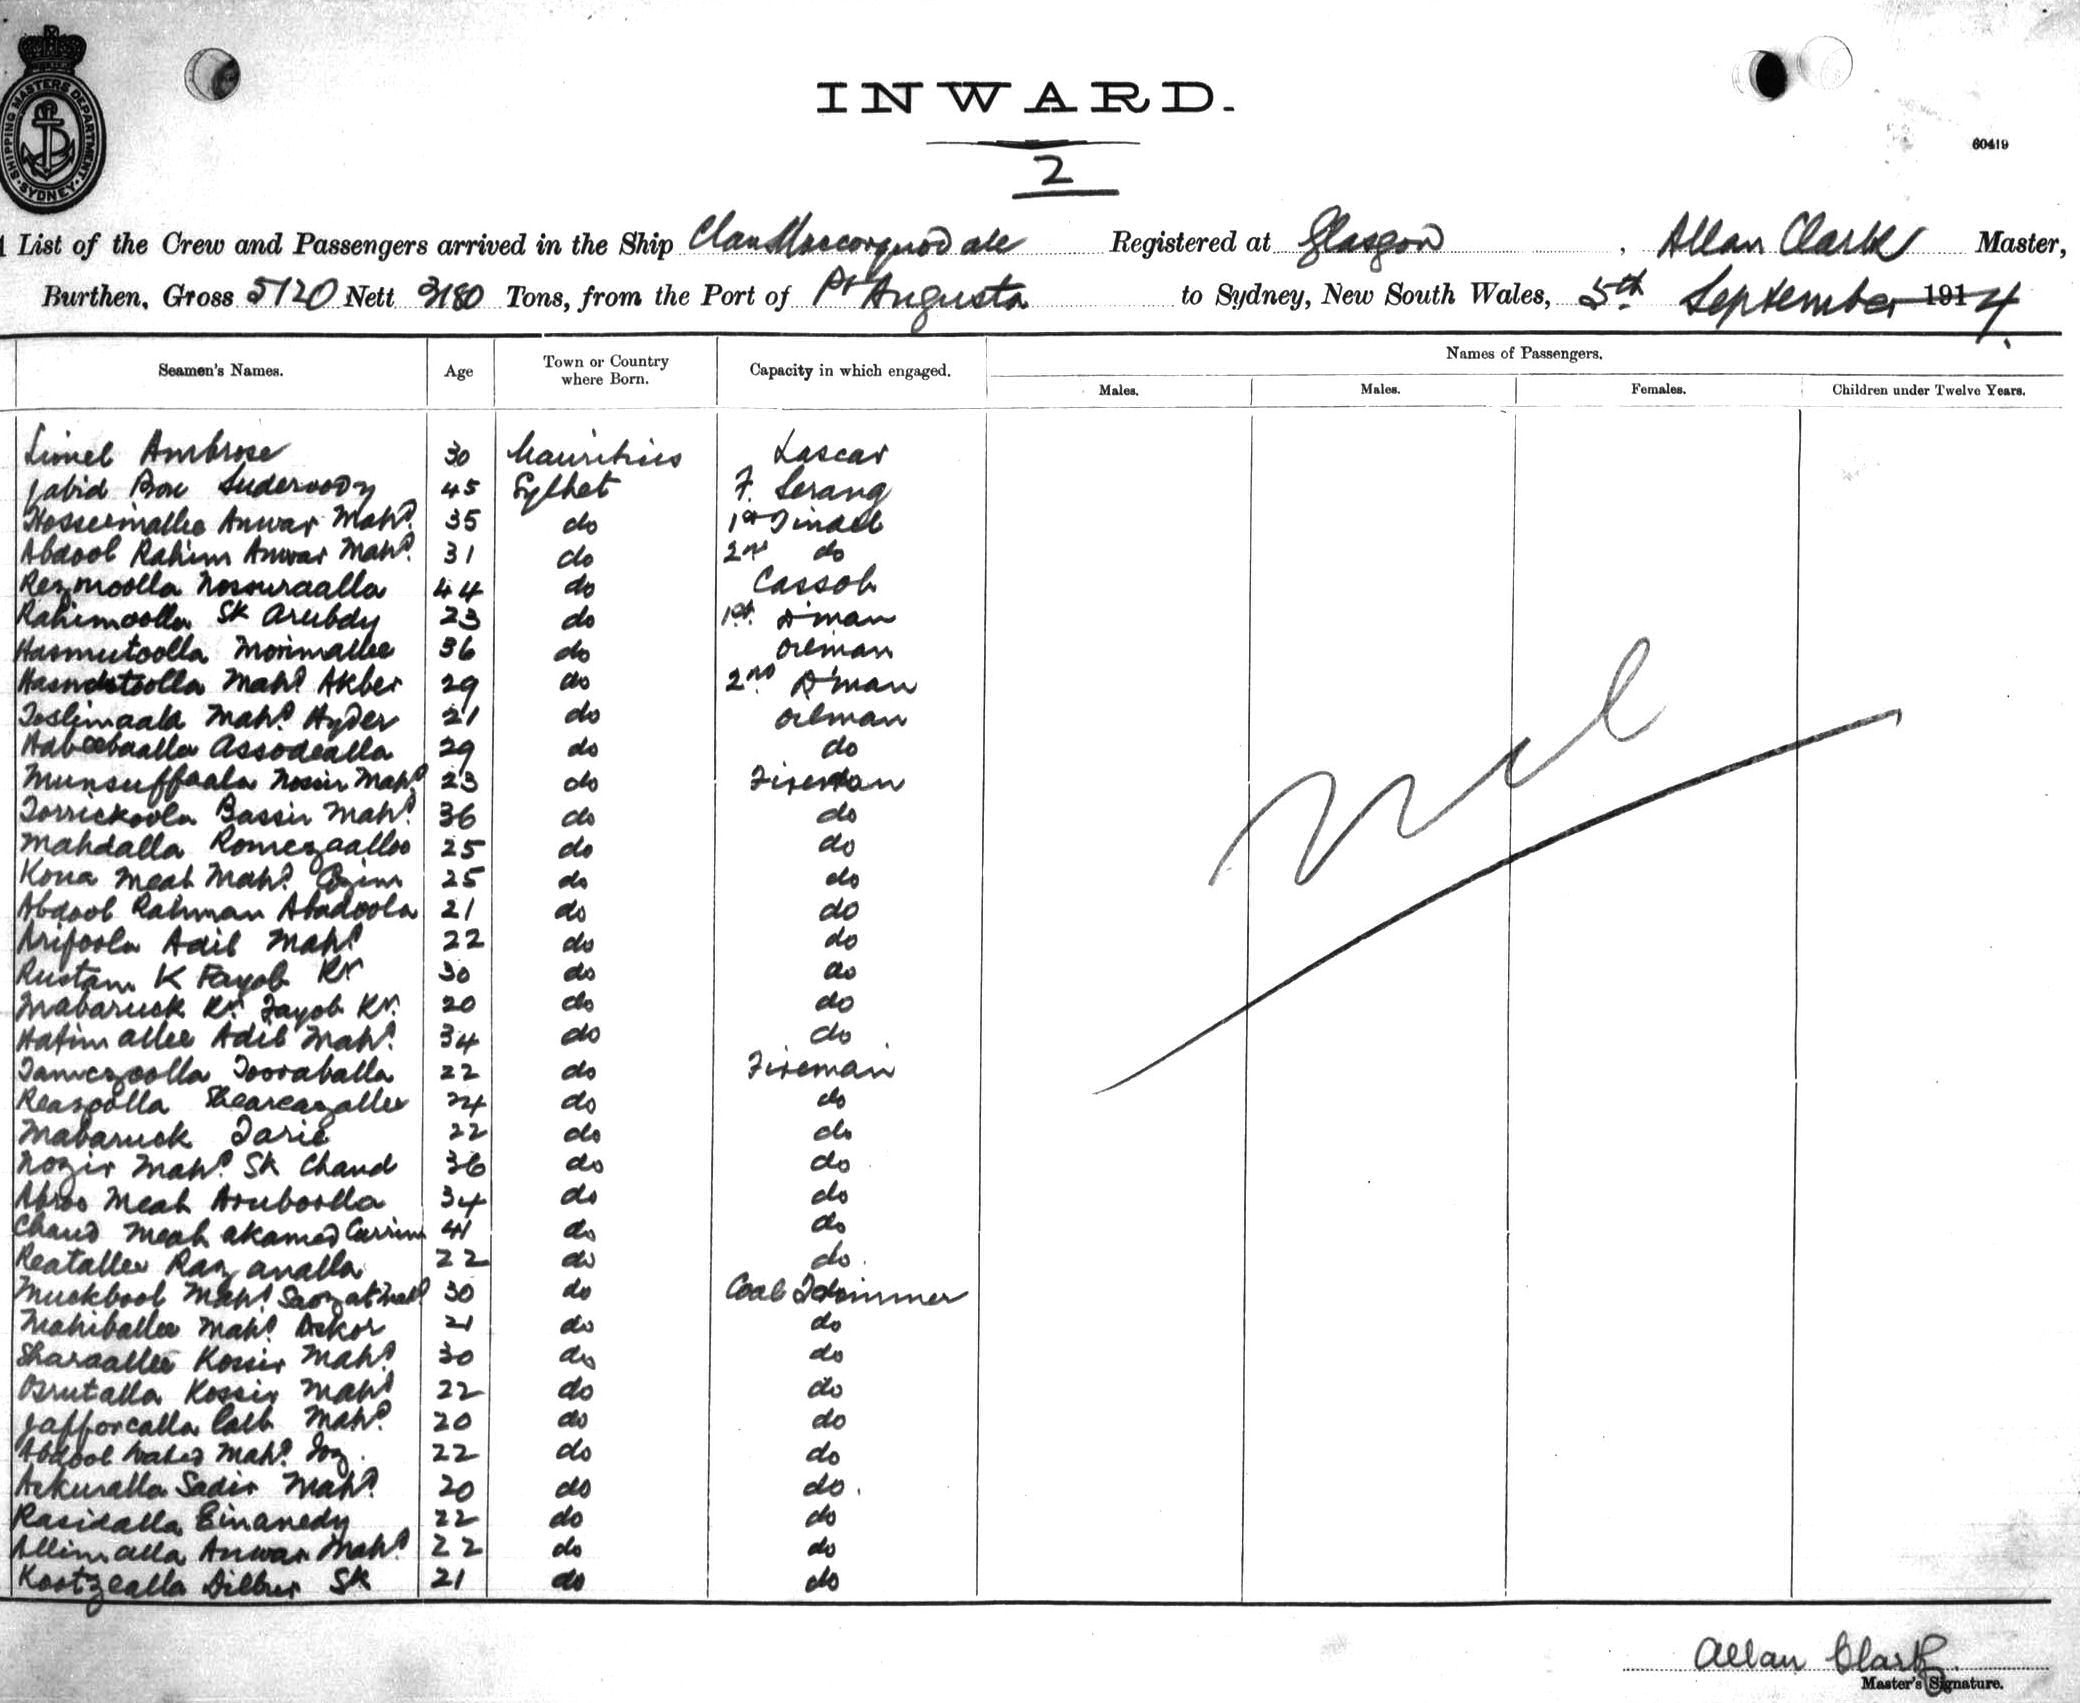 SHIPPING MASTERS DEPARTMENT
SYDNEY
INWARD.
60419
2
List of the Crew and Passengers arrived in the Ship Clan Maccorquodale Registered at Glasgow, Allan Clark Master,
Burthen, Gross 5120 Nett 3180 Tons, from the Port of Pt Augusta to Sydney, New South Wales, 5th September 1914
Names of Passengers.
Seamen's Names. Age Town or Country where Born. Capacity in which engaged. Males. Males. Females. Children under Twelve Years.
Lionel Ambrose 30 Mauritius Lascar
Jabid Box Suderoody 45 Sylhet F. Serang
Hosseinallee Anwar Mahd. 35 do 1st Tindel
Abdool Rahim Anwar Mahd. 31 do 2nd do
Rezmoolla Nosouraalla 44 do Cassob
Rahimoolla Sk Arubdy 23 do 1st. D'man
Hasmutoolla Morimallee 36 do Oilman
Hasmutoolla Mahd Akber 29 do 2nd. D'man
Toslimaala Mahd. Hyder 21 do Oilman
Habeebaalla Assodealla 29 do do
Munsuffaala Nossir Mahd. 23 do Fireman
Torrickoola Bassir Mahd. 36 do do
Mahdalla Romezaalloo 25 do do
Koua Meah Mahd. Cozim 25 do do
Abdool Rahman Abadoola 21 do do
Arifoola Adil Mahd 22 do do
Rustam K Tayob Kn 30 do do
Mabaruck Kn. Tayob Kn. 20 do do
Hatimallee Adil Mahd. 34 do do
Tamezoolla Tooraballa 22 do Fireman
Reazoolla Sheareazallee 24 do do
Mabaruck Tarie 22 do do
Nozir Mahd. Sk Chand 36 do do
Abroo Meah Aruboolla 34 do do
Chand Meah Akamed Currim 41 do do
Reatallee Razanalla 22 do do.
Muckbool Mahd. 30 do Coal Trimmer
Mahiballee Mahd. Askor 21 do do
Sharaallee Kossir Mahd. 30 do do
Osrutalla Kossir Mahd 22 do do
Jafforealla Calb Mahd. 20 do do
Abdool Wahed Mahd. Toz. 22 do do
Askuralla Sadir Mahd. 20 do do.
Rasidalla Einanedy 22 do do
Allimalla Anwar Mahd. 22 do do
Kootzealla Dilbur Sk 21 do do
Nil
Allan Clark
Master's Signature.